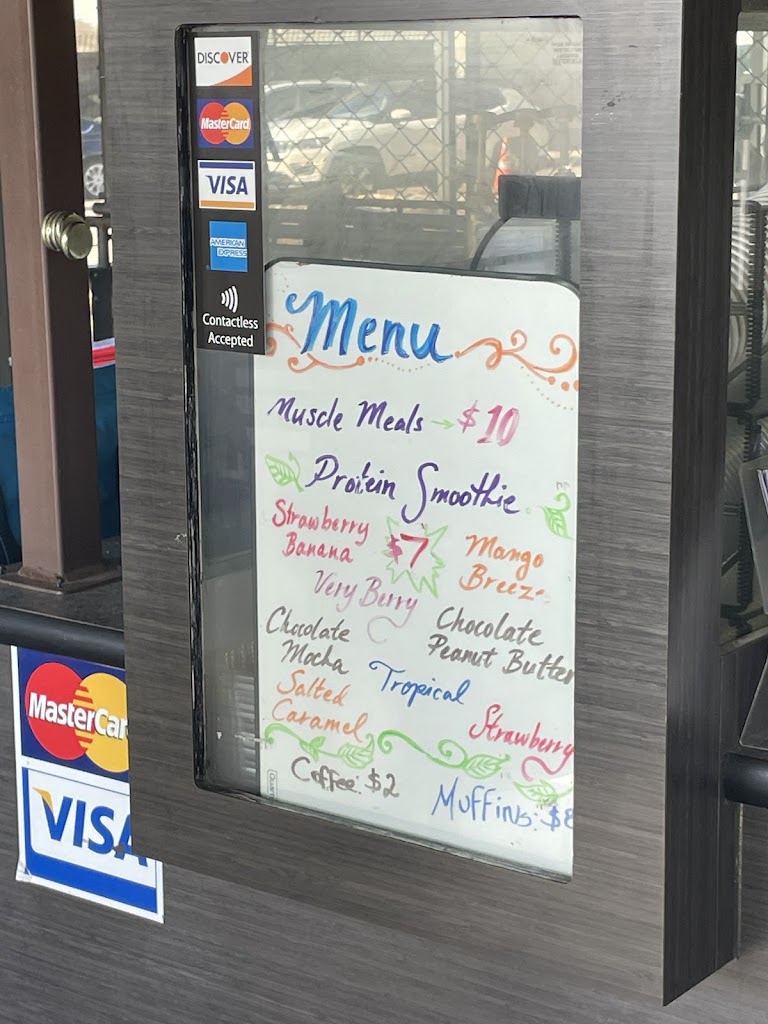 DISCOVER
MasterCard
VISA
AMERICAN
EXPRESS
Contactless
Accepted
Menu
Muscle Meals → $10
Protein Smoothie
Strawberry
Banana
$7
Mango
Breez
Very Berry
Chocolate
Mocha
Chocolate
Peanut Butter
Tropical
Salted
Caramel
Strawberry
Coffee: $2
Muffins: $
MasterCar
VISA